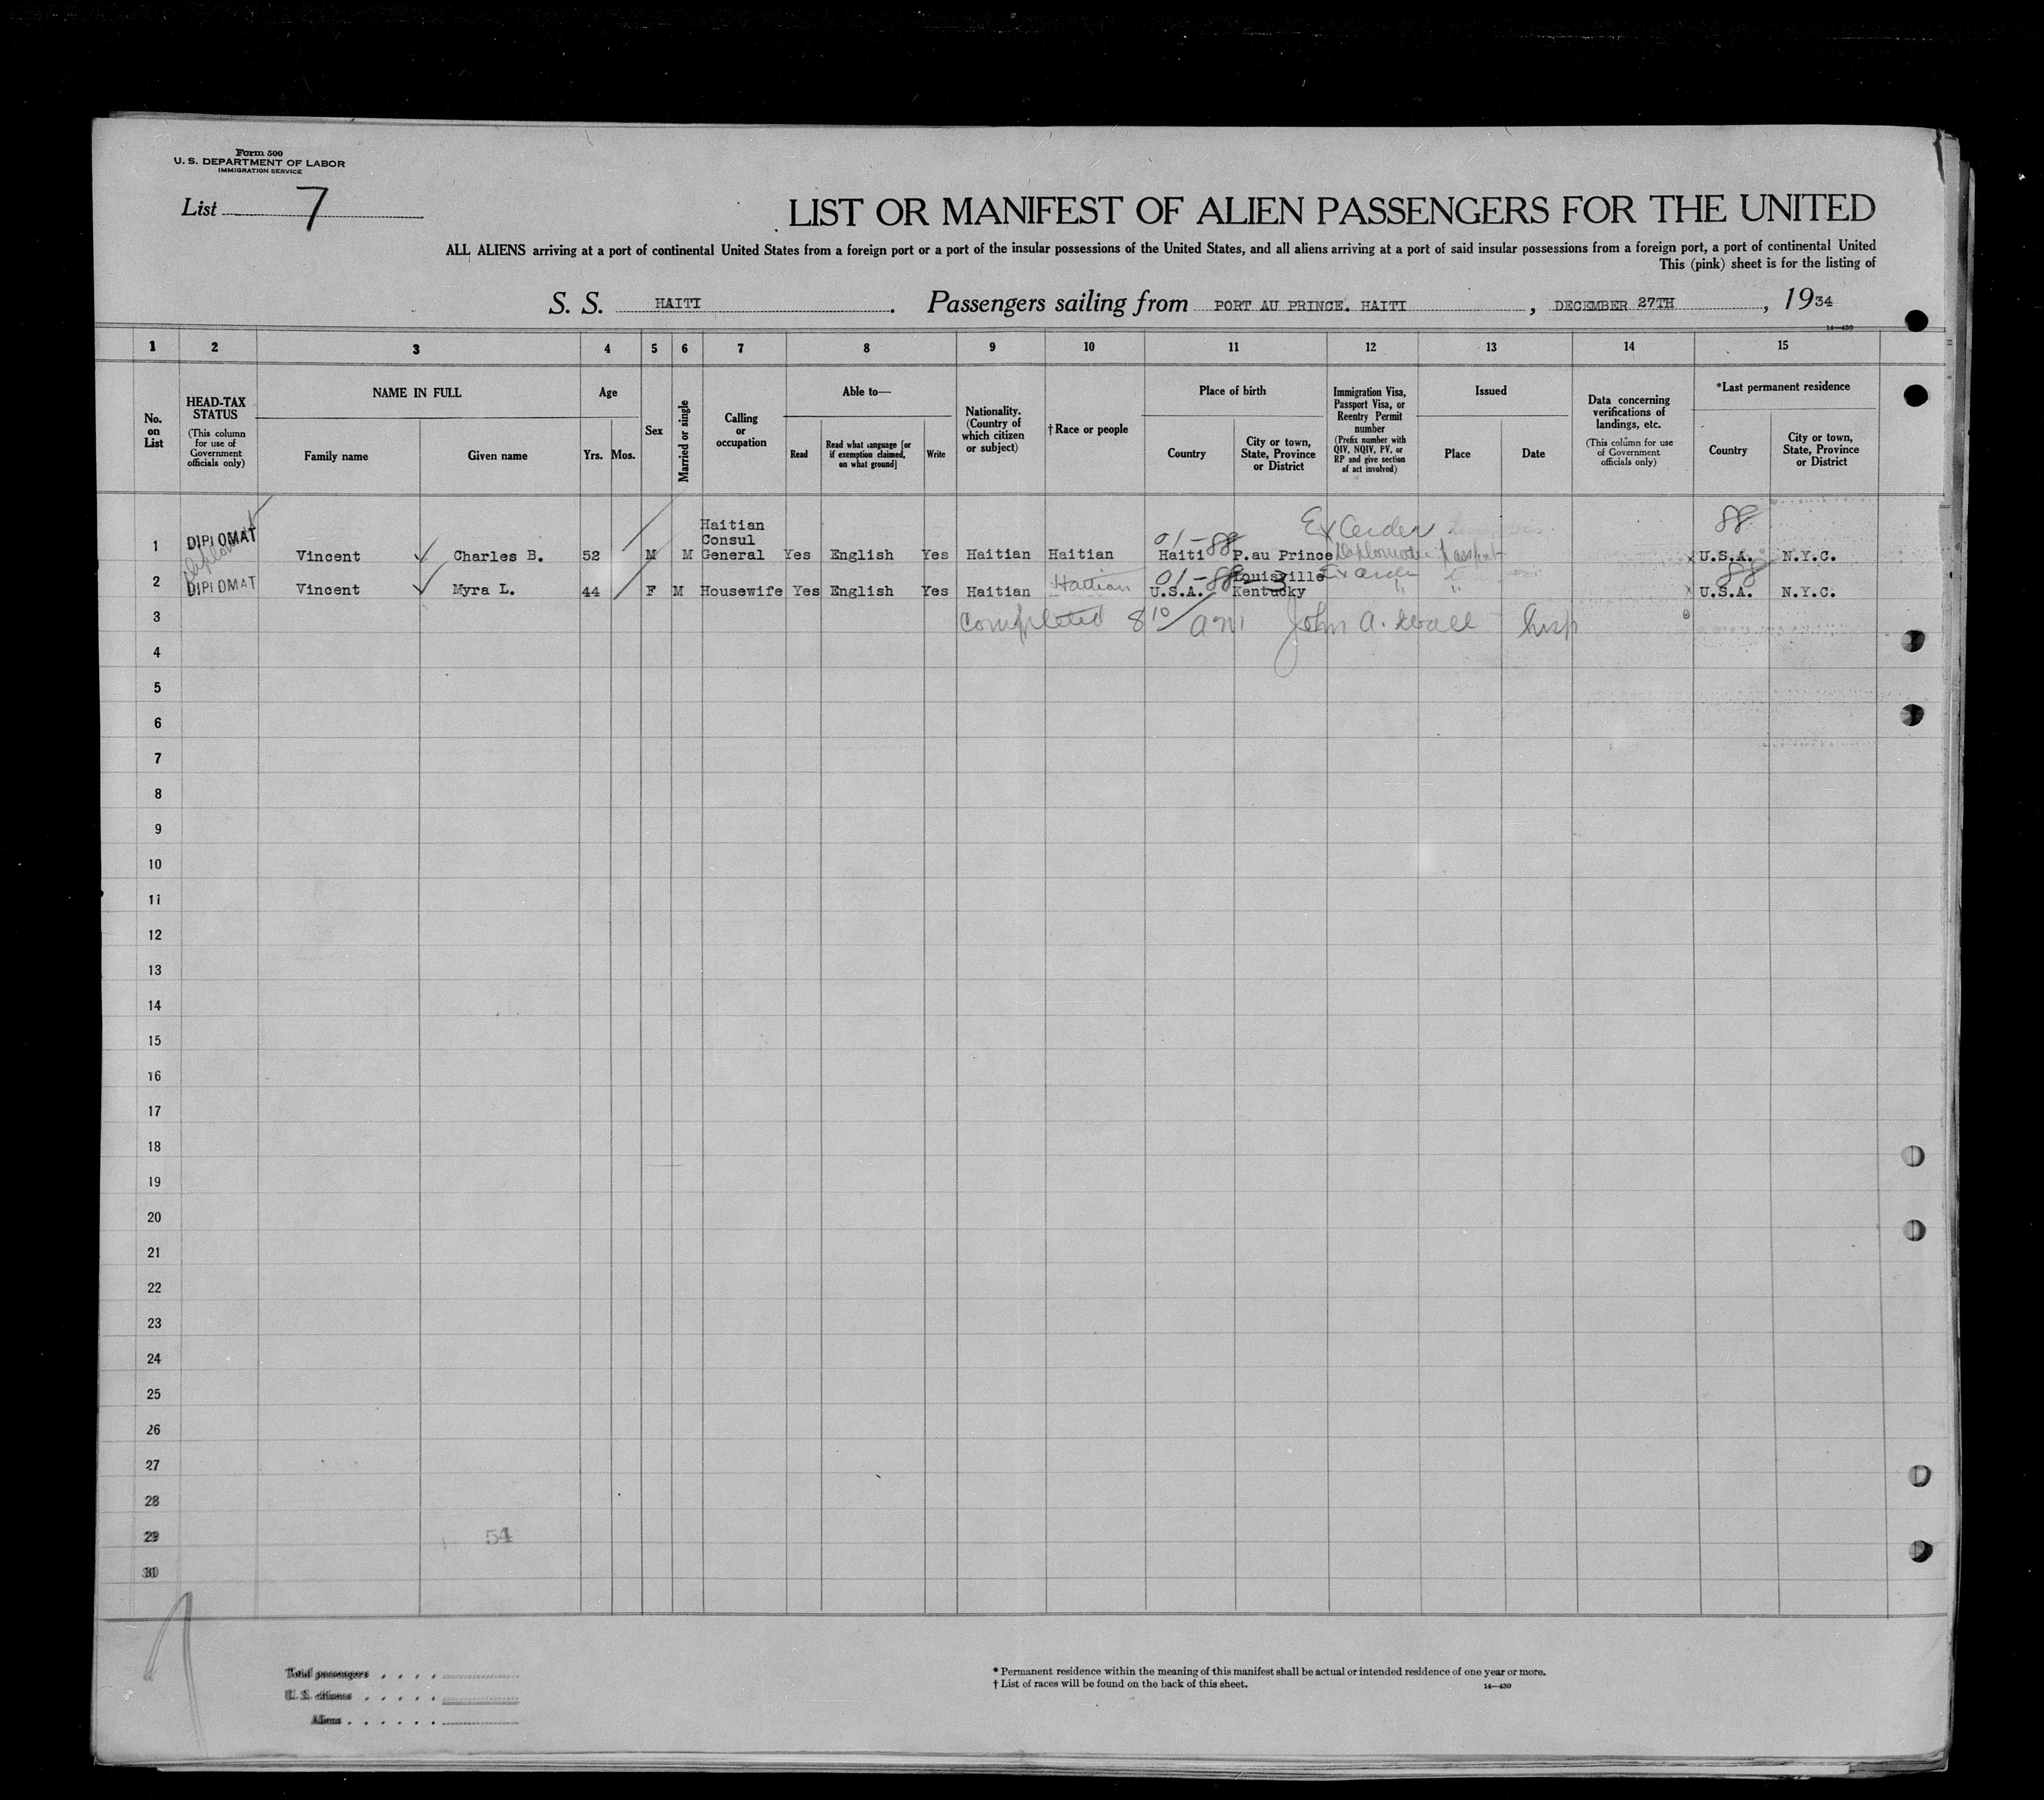 Form 500
U. S. DEPARTMENT OF LABOR
IMMIGRATION SERVICE
List 7
LIST OR MANIFEST OF ALIEN PASSENGERS FOR THE UNITED
ALL ALIENS arriving at a port of continental United States from a foreign port or a port of the insular possessions of the United States, and all aliens arriving at a port of said insular possessions from a foreign port, a port of continental United
This (pink) sheet is for the listing of
S. S. HAITI. Passengers sailing from PORT AU PRINCE. HAITI, DECEMBER 27TH, 1934
14—430
1 2 3 4 5 6 7 8 9 10 11 12 13 14 15
No. on List
HEAD-TAX STATUS (This column for use of Government officials only)
NAME IN FULL
Family name Given name
Age
Yrs. Mos.
Sex
Married or single
Calling or occupation
Able to—
Read
Read what language [or if exemption claimed, on what ground]
Write
Nationality. (Country of which citizen or subject)
†Race or people
Place of birth
Country
City or town, State, Province or District
Immigration Visa, Passport Visa, or Reentry Permit number (Prefix number with QIV, NQIV, PV, or RP and give section of act involved)
Issued
Place Date
Data concerning verifications of landings, etc. (This column for use of Government officials only)
*Last permanent residence
Country
City or town, State, Province or District
1 DIPLOMAT Diplomat Vincent Charles B. 52 M M Haitian Consul General Yes English Yes Haitian Haitian 01-88 Haiti P.au Prince Ex Order Diplomatic Passport 88 U.S.A. N.Y.C.
2 DIPLOMAT Vincent Myra L. 44 F M Housewife Yes English Yes Haitian Haitian 01-88 U.S.A. Louisville Kentucky 3 Ex Order " " 88 U.S.A. N.Y.C.
3 Completed 8 10/ am John A. Wall Insp
4
5
6
7
8
9
10
11
12
13
14
15
16
17
18
19
20
21
22
23
24
25
26
27
28
29 54
30
Total passengers . . . .
U. S. citizens . . . . .
Aliens . . . . . .
* Permanent residence within the meaning of this manifest shall be actual or intended residence of one year or more.
† List of races will be found on the back of this sheet.
14—430